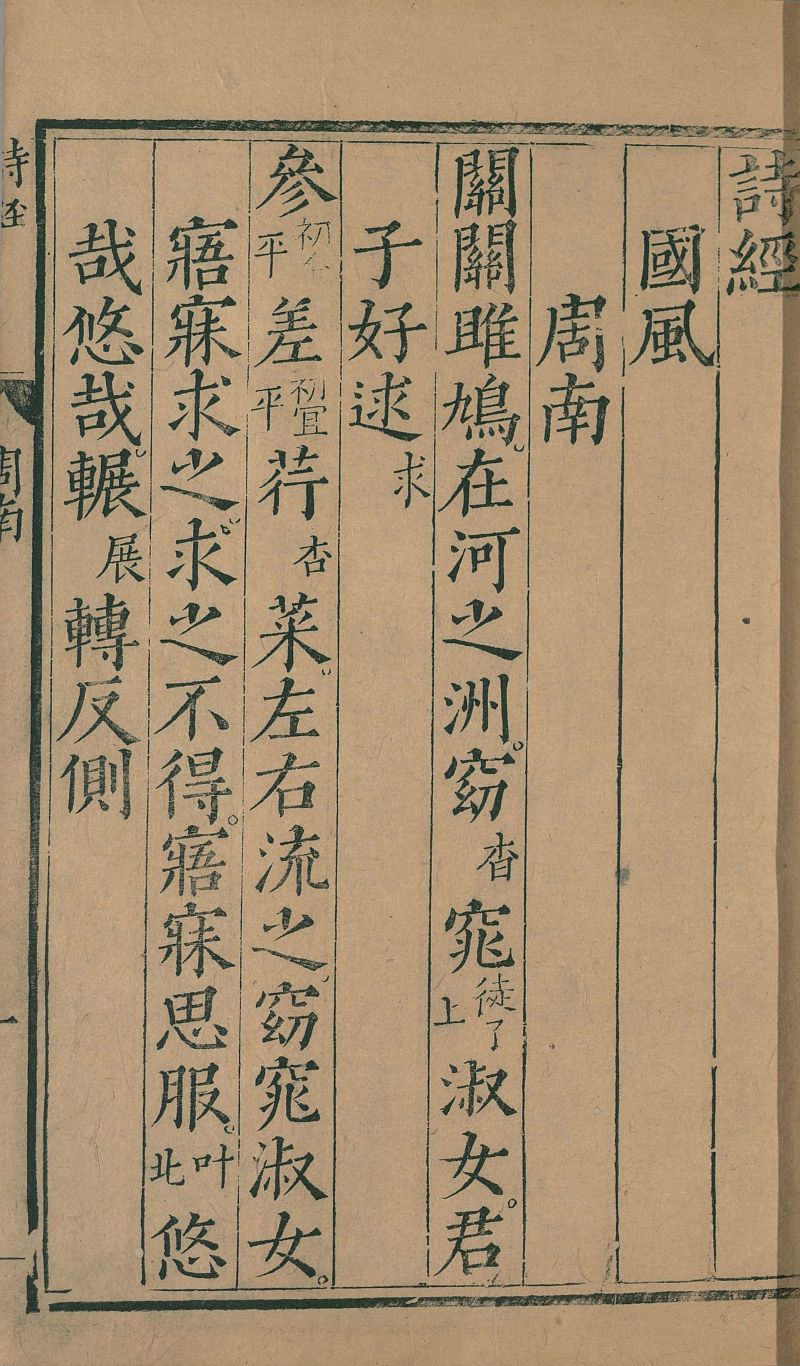 詩經
國風
周南
關關雎鳩在河之洲窈杳窕徒了上淑女君
子好逑求
參初平差初宜平荇杏菜左右流之窈窕淑女
寤寐求之求之不得寤寐思服叶北悠
哉悠哉輾展轉反側
詩經 周南 一